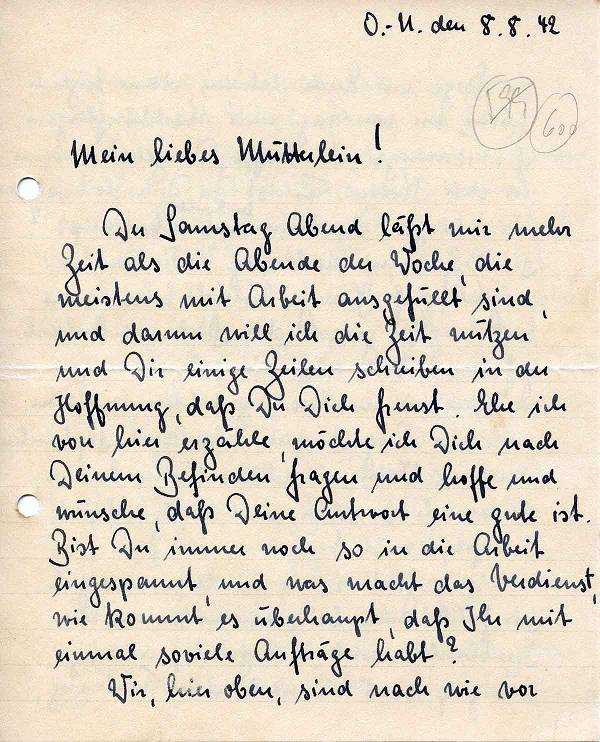 O.-U. den 8.8.42
600
Mein liebes Mütterlein!
Der Samstag Abend läßt mir mehr
Zeit als die Abende der Woche, die
meistens mit Arbeit ausgefüllt sind,
und darum will ich die Zeit nützen
und Dir einige Zeilen schreiben in der
Hoffnung, daß Du Dich freust. Ehe ich
von hier erzähle, möchte ich Dich nach
Deinem Befinden fragen und hoffe und
wünsche, daß Deine Antwort eine gute ist.
Bist Du immer noch so in die Arbeit
eingespannt, und was macht das Verdienst,
wie kommt es überhaupt, daß Ihr mit
einmal soviele Aufträge habt?
Wir, hier oben, sind nach wie vor